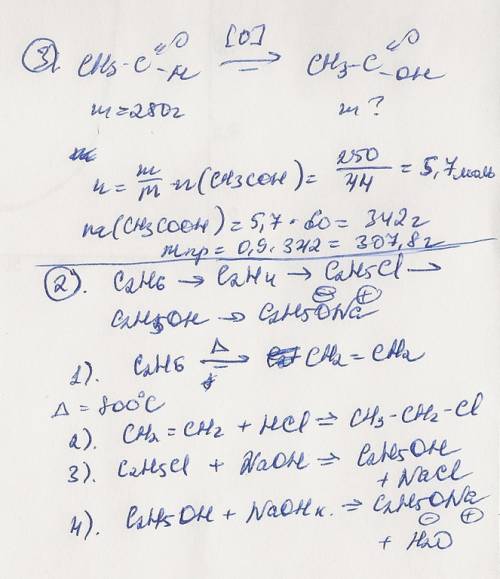 3). CH3-C=O-H [O] → CH3-C=O-OH
m=280г m?
n = m/M n(CH3COH) = 250/44 = 5,7 моль
m(CH3COOH) = 5,7 · 60 = 342г
mпр = 0,9 · 342 = 307,8г
2). C2H6 → C2H4 → C2H5Cl →
C2H5OH → C2H5ONa ⊖ ⊕
1). C2H6 Δ → CH2=CH2
Δ = 800°C
2). CH2=CH2 + HCl ⇒ CH3-CH2-Cl
3). C2H5Cl + NaOH ⇒ C2H5OH
+ NaCl
4). C2H5OH + NaOHк. ⇒ C2H5ONa
⊖ ⊕
+ H2O